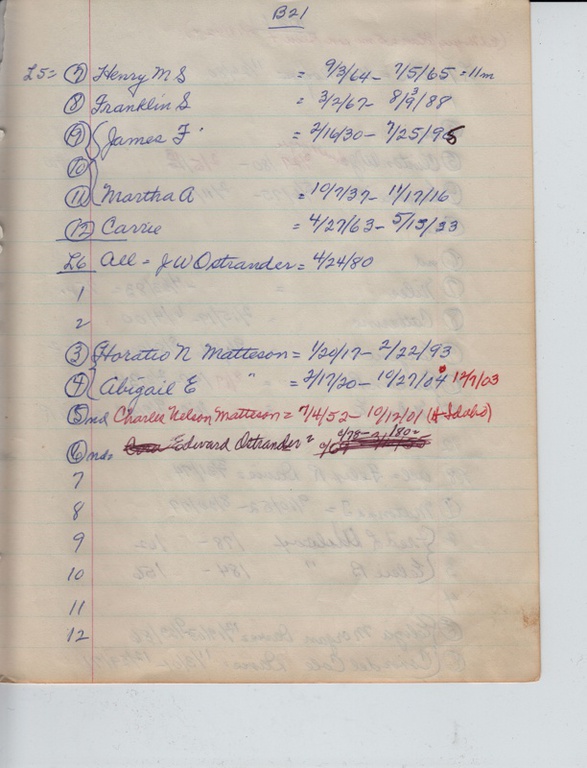 B21
L5= 7 Henry M S = 9/3/64 - 7/5/65 = 11m
8 Franklin S. = 3/2/67 - 8/9/88 3
9 James F. = 2/16/30 - 7/25/95
10
11 Martha A = 10/7/37 - 11/17/16
12 Carrie = 4/27/63 - 5/15/33
L6 All - J W Ostrander = 4/24/80
1
2
3 Horatio N Matteson = 1/20/17 - 2/22/93
4 Abigail E " = 2/17/20 - 10/27/04 12/7/03
5 nd Charles Nelson Matteson = 7/4/52 - 10/12/01 (A-Idaho)
6 nd= Edward Ostrander =
7
8
9
10
11
12